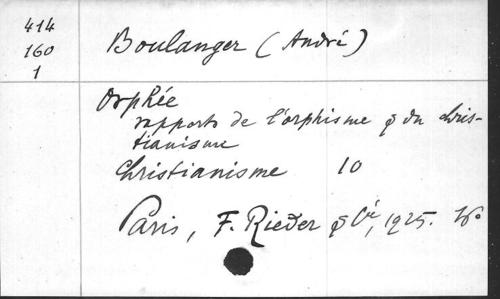 414
160
1
Boulanger (André)
Orphée
rapports de l'orphisme & du chris-
tianisme
Christianisme 10
Paris, F. Rieder & Cie, 1925.